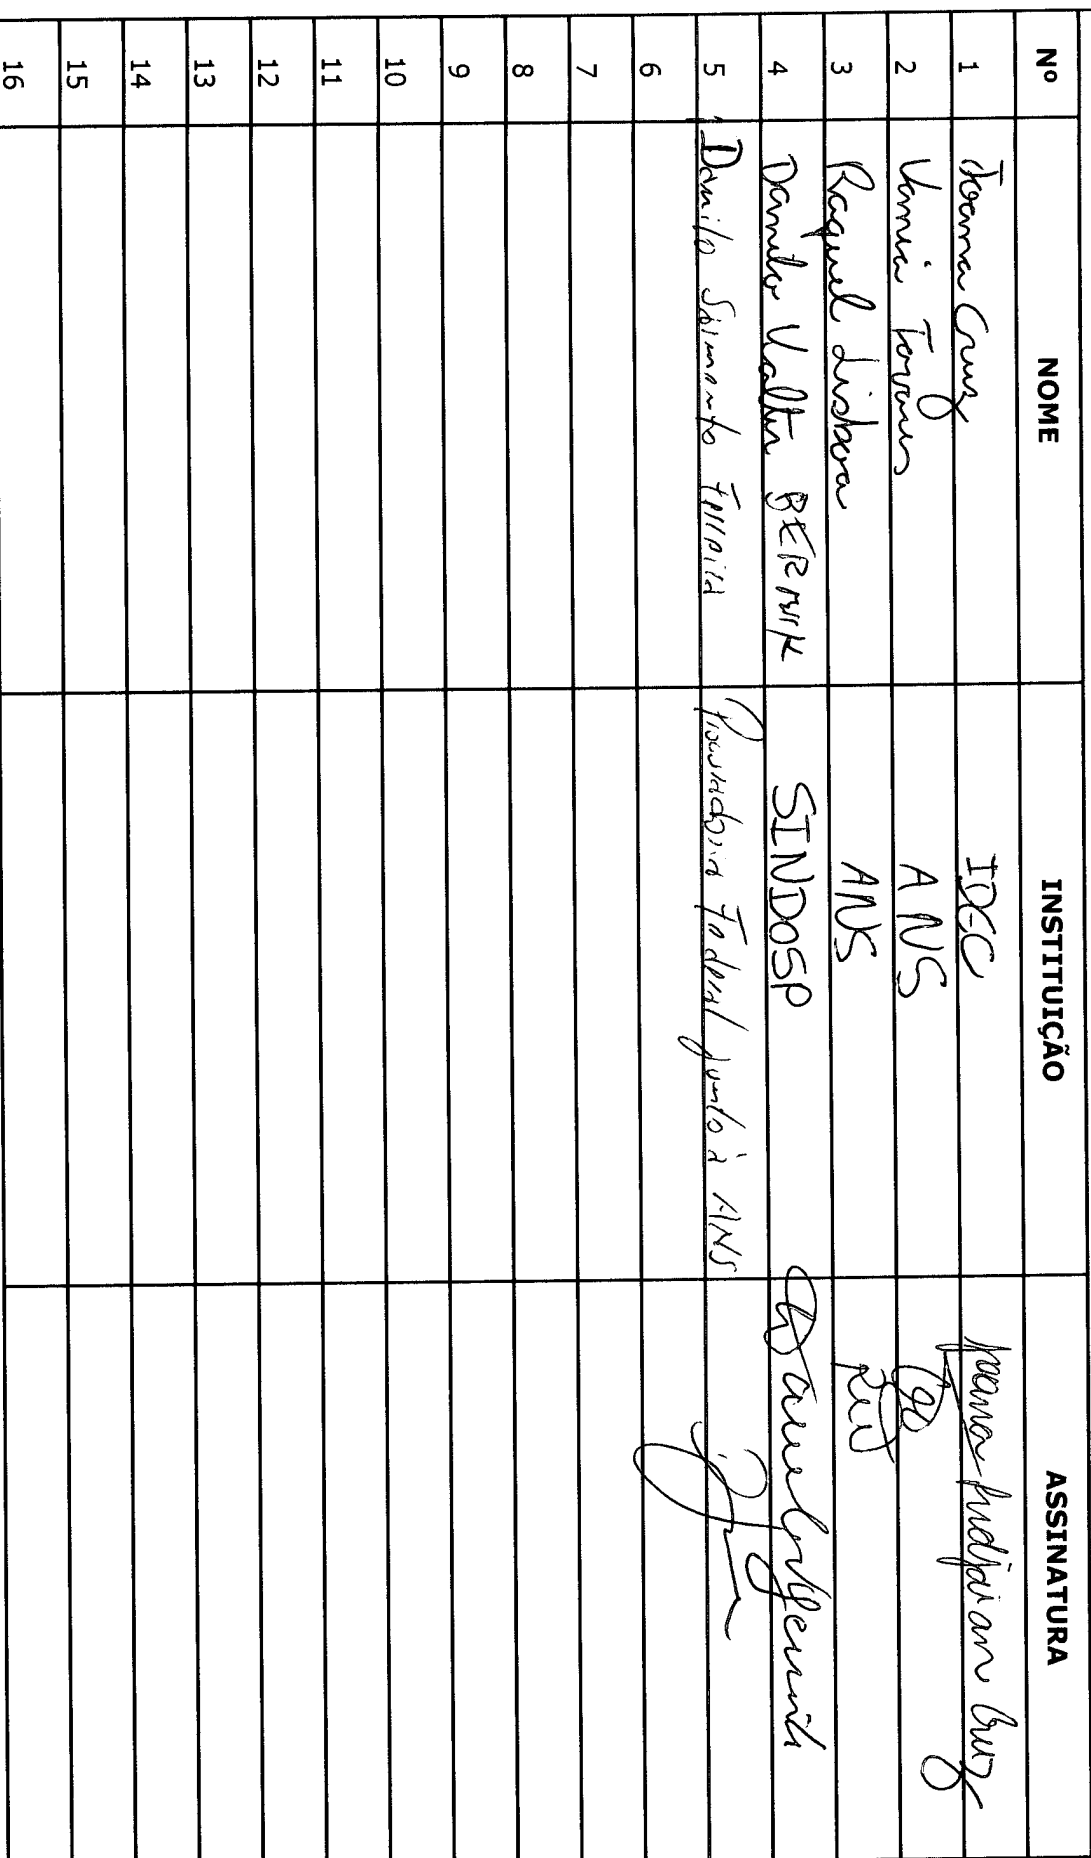 Nº NOME INSTITUIÇÃO ASSINATURA
1 Joana Cruz IDEC Joana Indjaian Cruz
2 Vania Tavares ANS
3 Raquel Lisboa ANS
4 Danilo Valter BERNIK SINDOSP
5 Danilo Sarmento Ferreira Procuradoria Federal junto à ANS
6
7
8
9
10
11
12
13
14
15
16